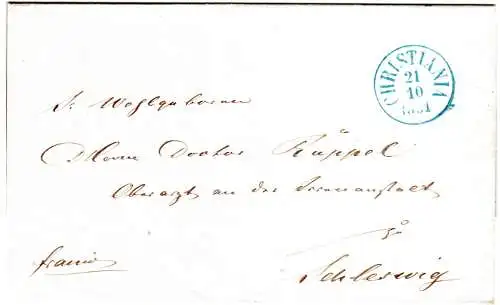 CHRISTIANIA
21
10
1851
Sr. Wohlgeboren
Herrn Doctor Rüppel
Oberarzt an der Irrenanstalt
zu
franco
Schleswig